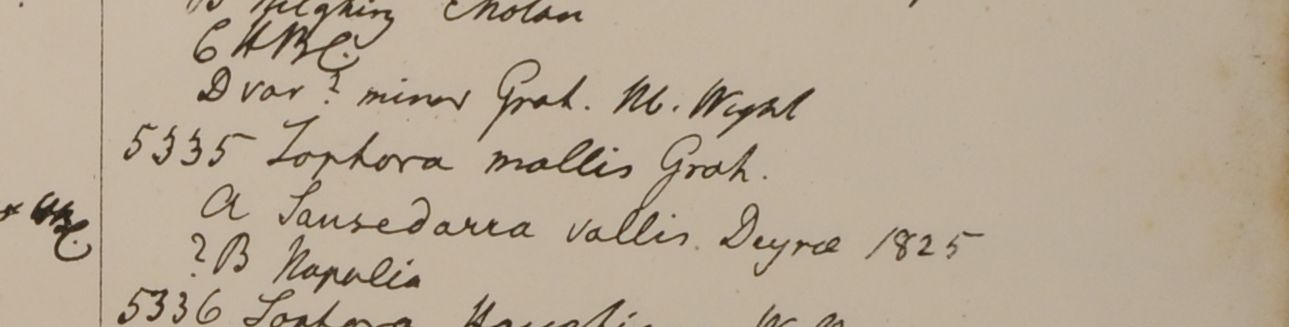 C HBC.
D var? minor Grah. Wight
5335 Sophora mollis Grah.
A Sansedarra vallis Deyræ 1825
?B Napalia
5336 Sophora
HBC.